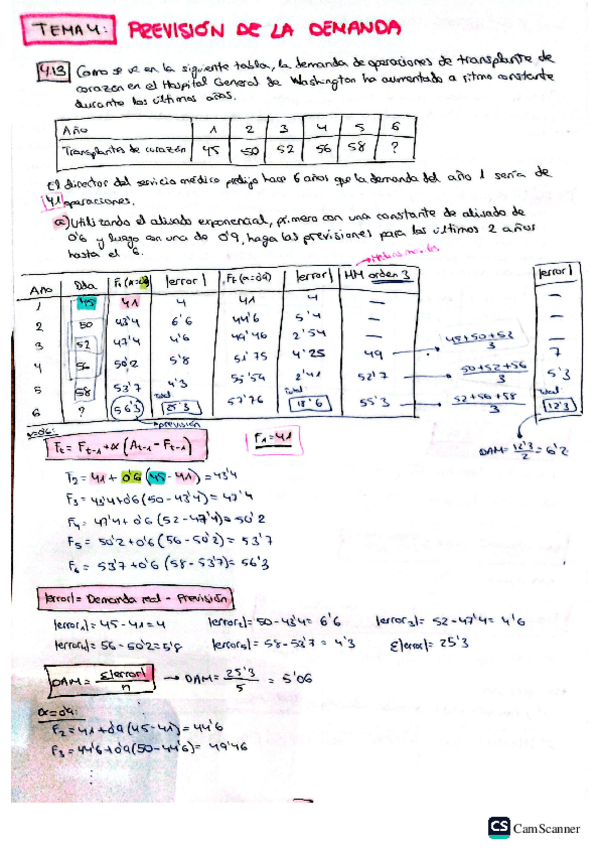 TEMA 4: PREVISIÓN DE LA DEMANDA
4.13 Como se ve en la siguiente tabla, la demanda de operaciones de transplante de
corazón en el Hospital General de Washington ha aumentado a ritmo constante
durante los últimos años.
Año 1 2 3 4 5 6
Transplantes de corazón 45 50 52 56 58 ?
El director del servicio médico predijo hace 6 años que la demanda del año 1 sería de
41 operaciones.
a) Utilizando el alisado exponencial, primero con una constante de alisado de
0'6 y luego con una de 0'9, haga las previsiones para los últimos 2 años
hasta el 6.
Año Dda Ft (α=0'6) |error| Ft (α=0'9) |error| MM orden 3 |error|
1 45 41 4 41 4 — —
2 50 43'4 6'6 44'6 5'4 — —
3 52 47'4 4'6 49'46 2'54 — —
4 56 50'2 5'8 51'75 4'25 49 → 45+50+52/3 7
5 58 53'7 4'3 55'54 2'41 52'7 → 50+52+56/3 5'3
6 ? 56'3 Total 25'3 57'76 Total 18'6 55'3 → 52+56+58/3 Total 12'3
→ previsión
α=0'6:
Ft = Ft-1 + α (At-1 - Ft-1) F1=41
DAM= 12'3/2 = 6'2
F2 = 41 + 0'6 (45 - 41) = 43'4
F3 = 43'4+0'6 (50 - 43'4) = 47'4
F4 = 47'4 + 0'6 (52 - 47'4) = 50'2
F5 = 50'2 + 0'6 (56 - 50'2) = 53'7
F6 = 53'7 + 0'6 (58 - 53'7) = 56'3
|error| = Demanda real - Previsión
|error1| = 45 - 41 = 4 |error2| = 50 - 43'4 = 6'6 |error3| = 52 - 47'4 = 4'6
|error4| = 56 - 50'2 = 5'8 |error5| = 58 - 53'7 = 4'3 Σ|error| = 25'3
DAM = Σ|error|/n → DAM = 25'3/5 = 5'06
α=0'9:
F2 = 41 + 0'9 (45 - 41) = 44'6
F3 = 44'6 + 0'9 (50 - 44'6) = 49'46
CS CamScanner